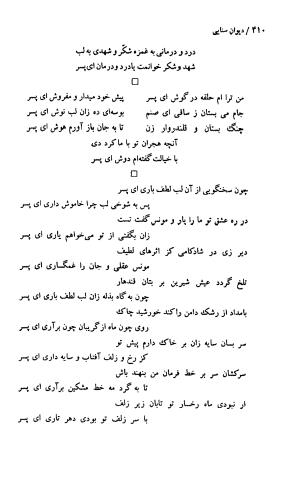 ۴۱۰ / دیوان سنایی
درد و درمانی به غمزه شکّر و شهدی به لب
شهد و شکر خوانمت یا درد و درمان ای پسر
من ترا ام حلقه در گوش ای پسر پیش خود میدار و مفروش ای پسر
جام می بستان ز ساقی ای صنم بوسه‌ای ده زان لب نوش ای پسر
چنگ بستان و قلندروار زن تا به جان باز آورم هوش ای پسر
آنچه هجران تو با ما کرد دی
با خیالت گفته‌ام دوش ای پسر
چون سخنگویی از آن لب لطف باری ای پسر
پس به شوخی لب چرا خاموش داری ای پسر
در ره عشق تو ما را یار و مونس گفت تست
زان بگفتی از تو می‌خواهم یاری ای پسر
دیر زی در شادکامی کز اثرهای لطیف
مونس عقلی و جان را غمگساری ای پسر
تلخ گردد عیش شیرین بر بتان قندهار
چون به گاه بذله زان لب لطف باری ای پسر
بامداد از رشک دامن را کند خورشید چاک
روی چون ماه از گریبان چون برآری ای پسر
سر بسان سایه زان بر خاک دارم پیش تو
کز رخ و زلف آفتاب و سایه داری ای پسر
سرکشان سر بر خط فرمان من بنهند باش
تا به گرد مه خط مشکین برآری ای پسر
ار نبودی ماه رخسار تو تابان زیر زلف
با سر زلف تو بودی دهر تاری ای پسر